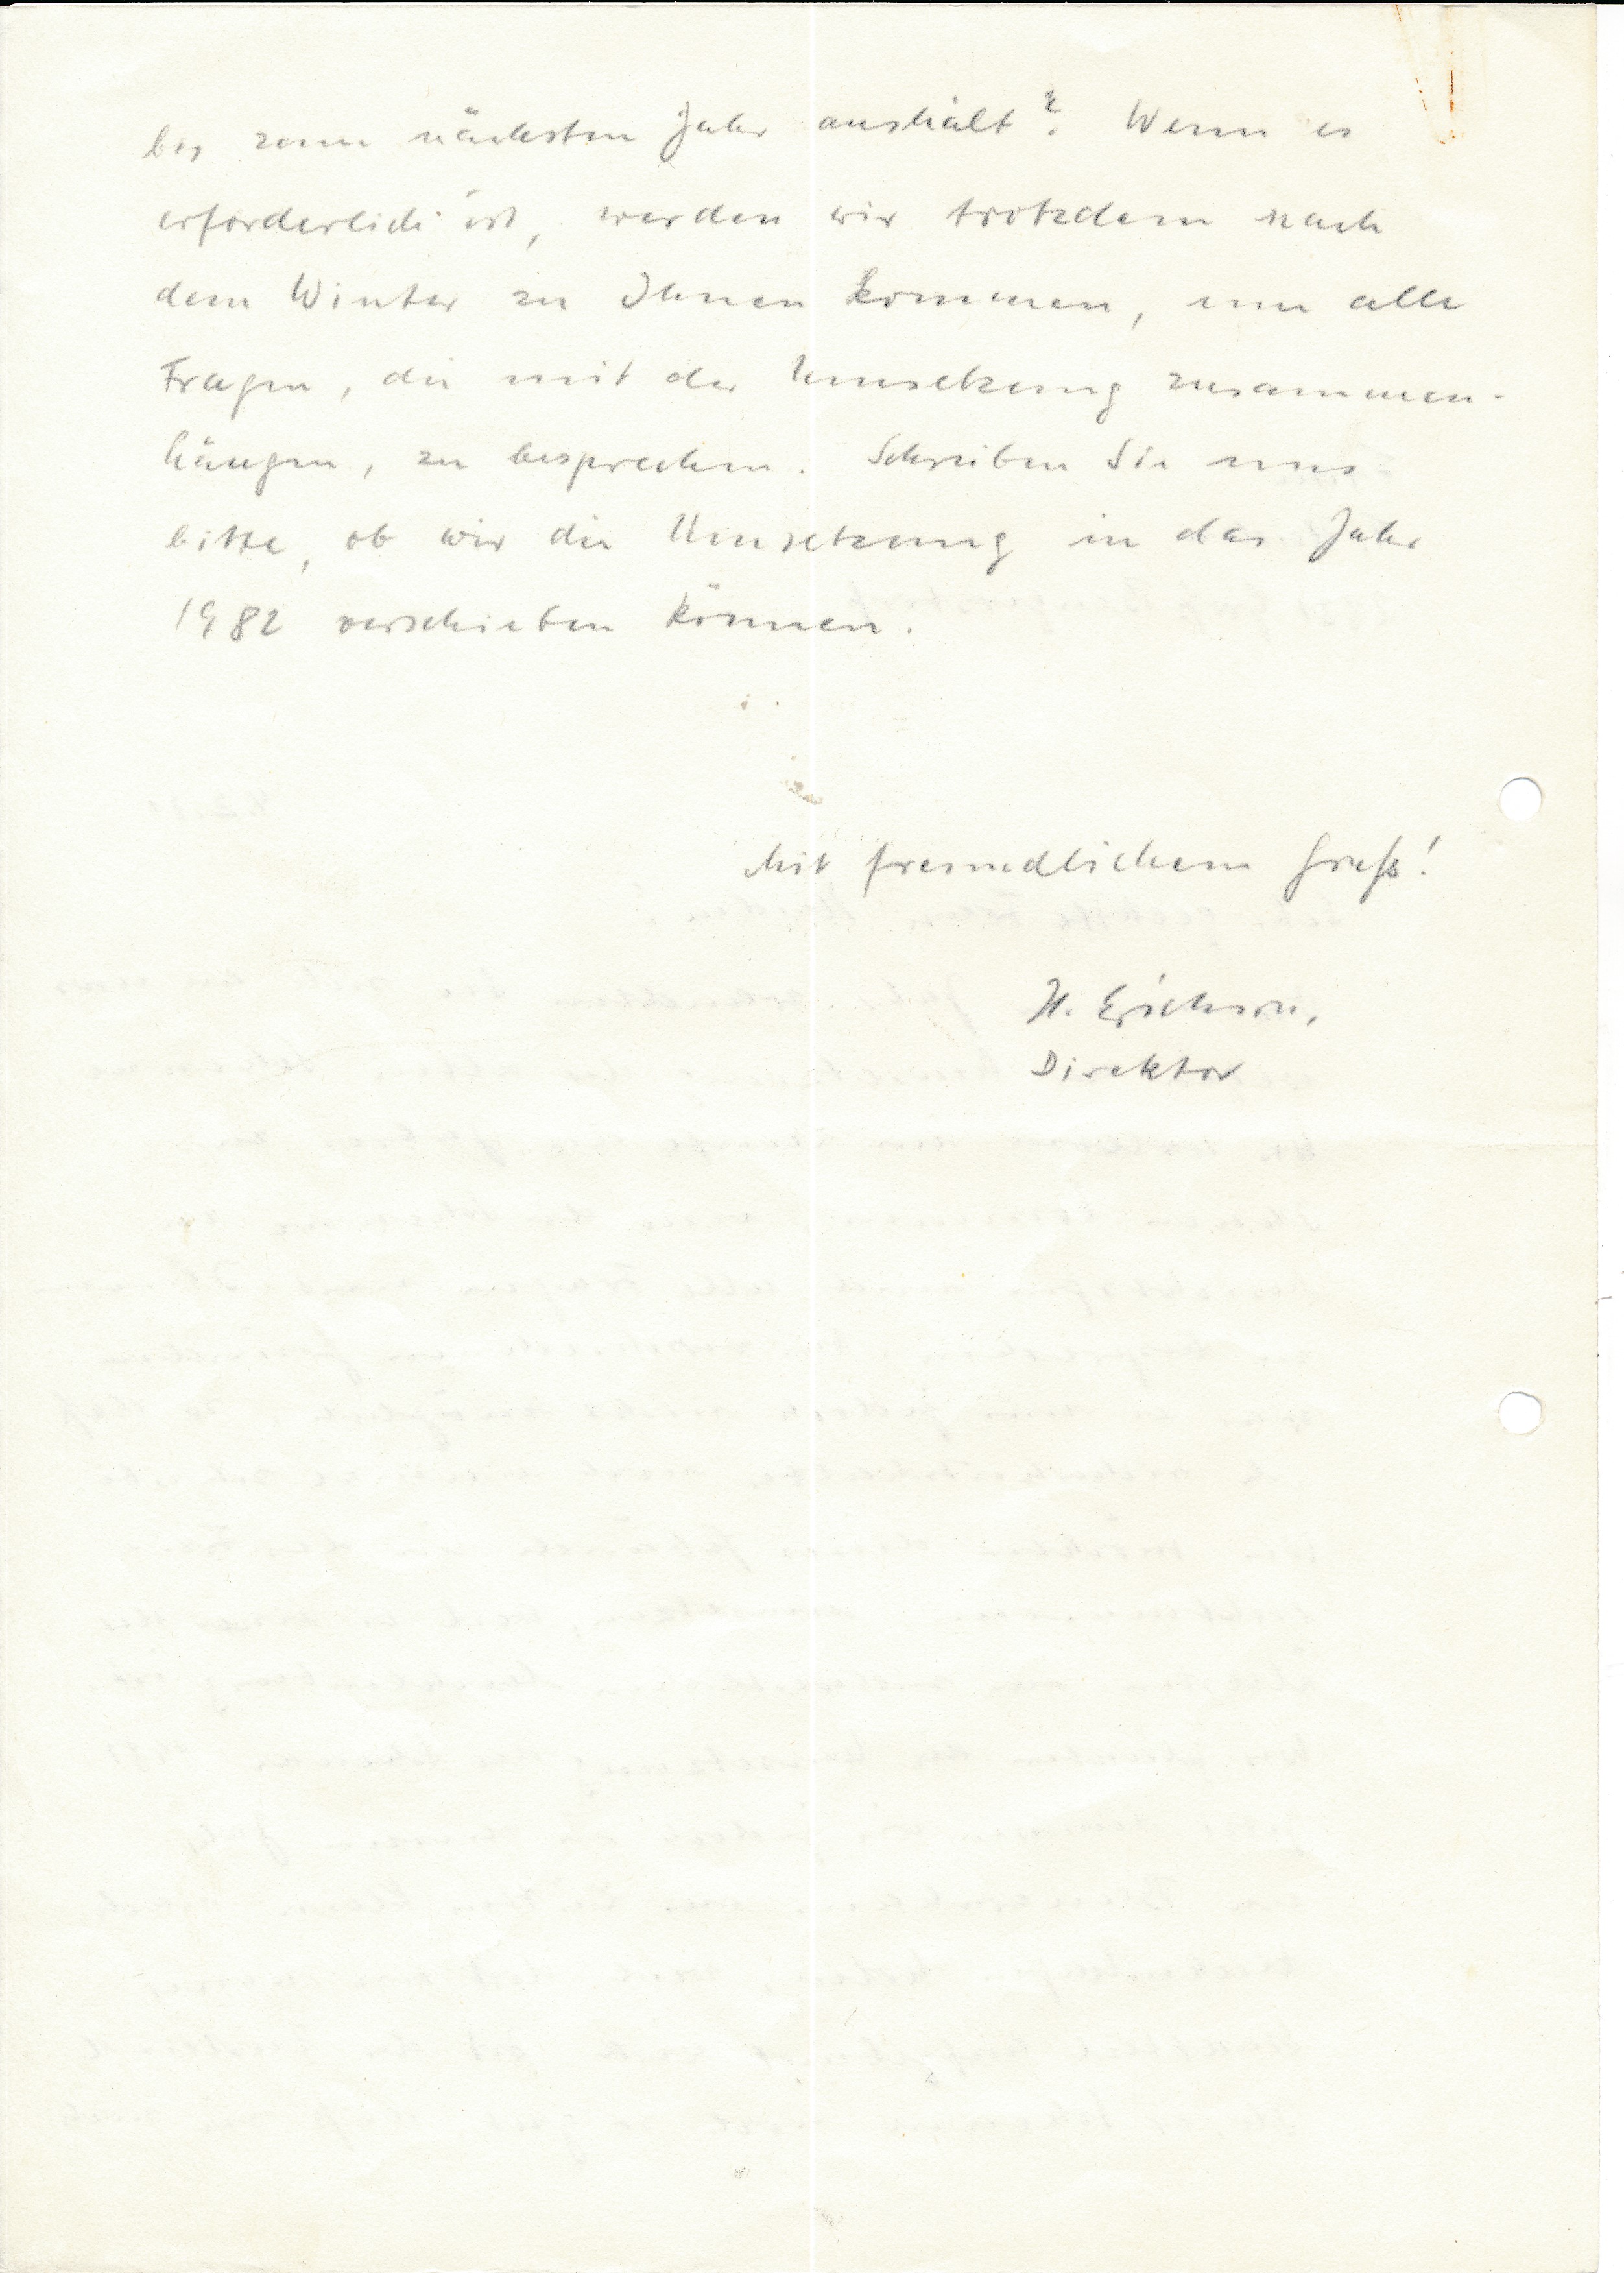 bis zum nächsten Jahr aushält? Wenn es
erforderlich ist, werden wir trotzdem nach
dem Winter zu Ihnen kommen, um alle
Fragen, die mit der Umsetzung zusammen-
hängen, zu besprechen. Schreiben Sie uns
bitte, ob wir die Umsetzung in das Jahr
1982 verschieben können.
Mit freundlichem Gruß!
H. Erichson,
Direktor